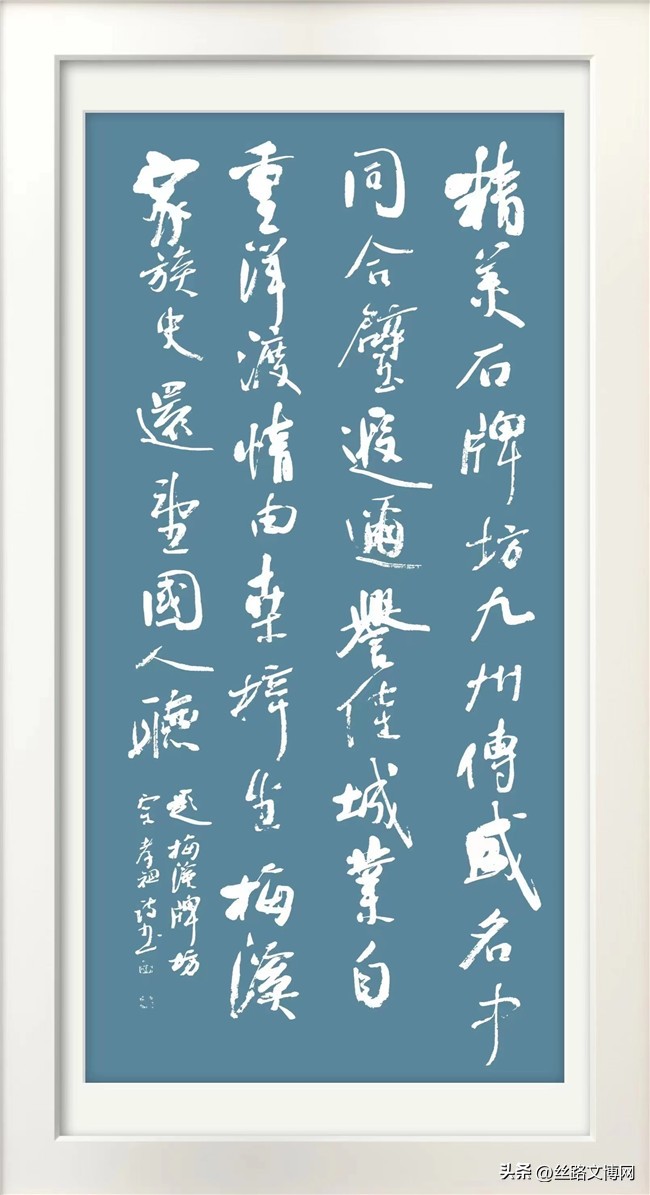 精美石牌坊九州傳盛名中
同合璧遐邇譽佳城業自
重洋渡情由桑梓生梅溪
家族史還望國人聽
題梅溪牌坊
宋孝祖詩书
头条 @丝路文博网